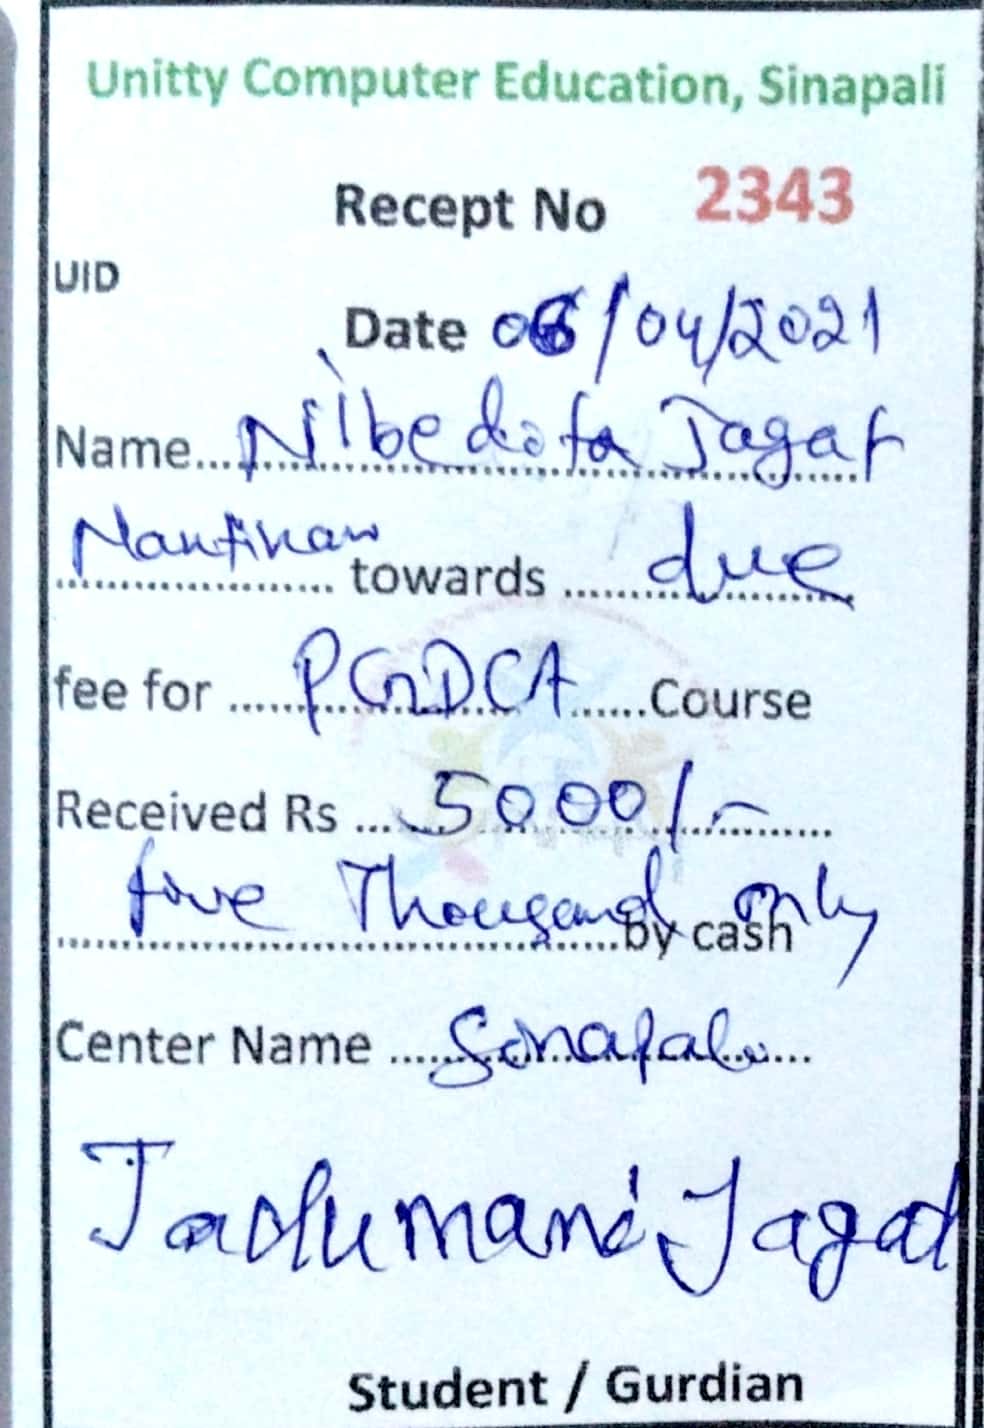 Unitty Computer Education, Sinapali
Recept No 2343
UID
Date 06/04/2021
Name... Nibedita Jagat
towards ... due
fee for ... PGDCA ... Course
Received Rs ... 5000/-
five Thousand only
by cash
Center Name ... Sinapali
Jadumani Jagat
Student / Gurdian